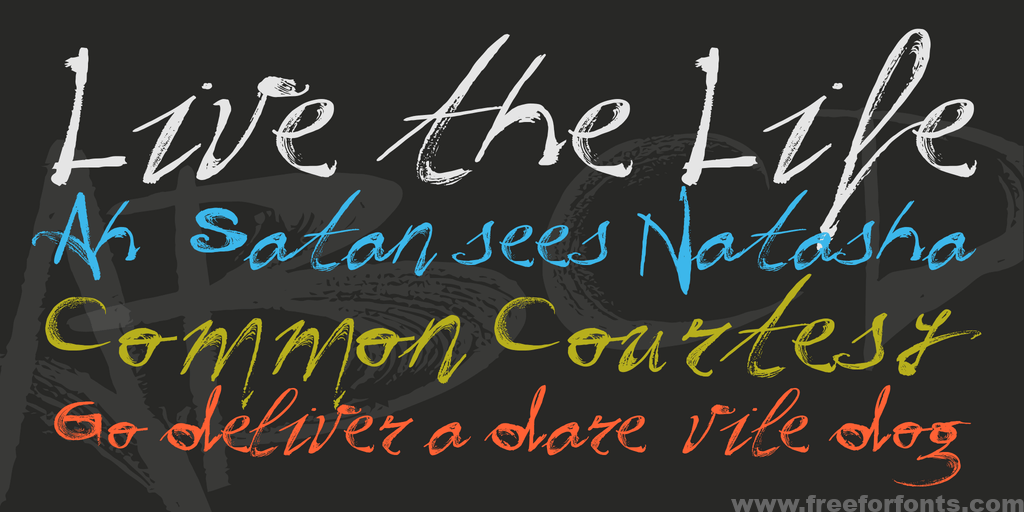 Live the Life
Ah Satan sees Natasha
Common Courtesy
Go deliver a dare vile dog
ABCD
www.freeforfonts.com